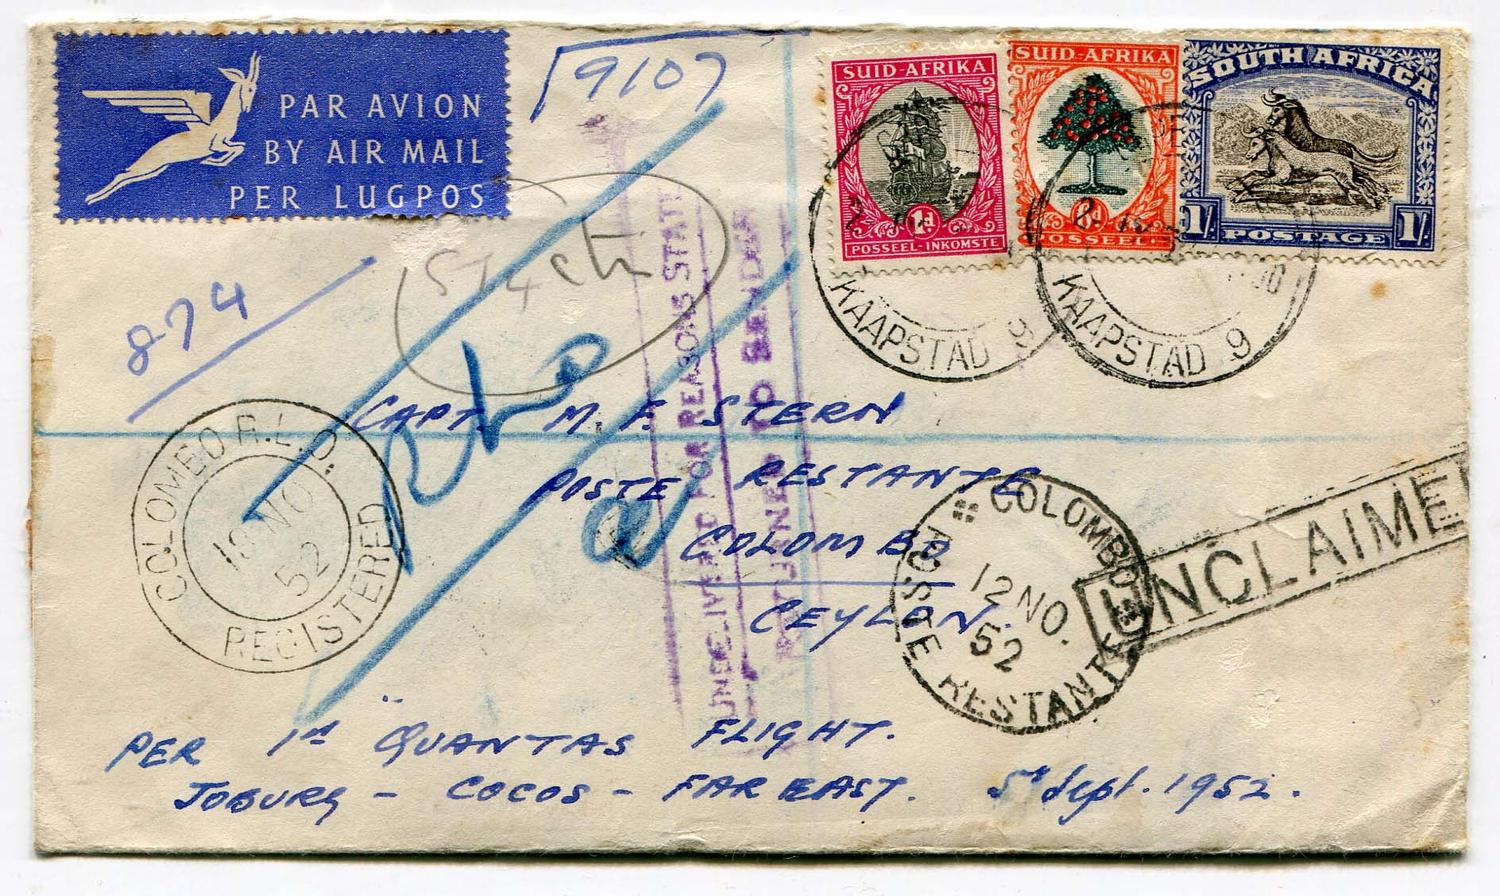 PAR AVION
BY AIR MAIL
PER LUGPOS
9107
SUID-AFRIKA
1d
POSSEEL-INKOMSTE
SUID-AFRIKA
POSSEEL-
SOUTH AFRICA
1/- 1/-
POSTAGE
KAAPSTAD 9
KAAPSTAD 9
874
UNDELIVERED FOR REASONS STATED
RETURNED TO SENDER
CAPT. M. F. STERN
POSTE RESTANTE
COLOMBO
CEYLON.
COLOMBO R.L.D.
NO
52
REGISTERED
COLOMBO
12 NO.
52
POSTE RESTANTE
UNCLAIMED
PER 1st QUANTAS FLIGHT.
JOBURG - COCOS - FAR EAST. 5th Sept. 1952.